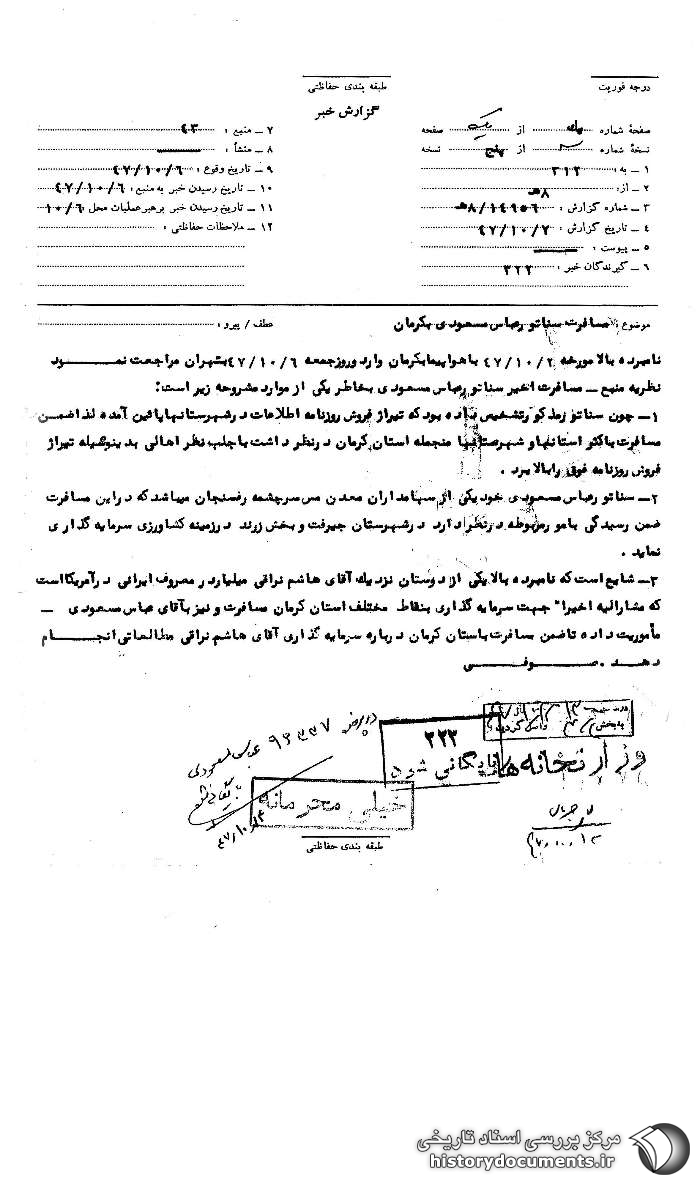 درجه فوریت
طبقه بندی حفاظتی
گزارش خبر
صفحهٔ شماره یك از یک صفحه
نسخهٔ شماره از پنج نسخه
۱ ـ به: ۳۱۲
۲ ـ از: ۸هـ
۳ ـ شماره گزارش: ۸/۱۴۹۵۶هـ
۴ ـ تاریخ گزارش: ۴۷/۱۰/۷
۵ ـ پیوست:
۶ ـ گیرندگان خبر: ۳۲۲
۷ ـ منبع: ۴۳
۸ ـ منشأ:
۹ ـ تاریخ وقوع: ۴۷/۱۰/۶
۱۰ ـ تاریخ رسیدن خبر به منبع: ۴۷/۱۰/۶
۱۱ ـ تاریخ رسیدن خبر برهبر عملیات محل: ۱۰/۶
۱۲ ـ ملاحظات حفاظتی:
موضوع: مسافرت سناتور عباس مسعودی بکرمان عطف / پیرو:
نامبرده بالا مورخه ۴۷/۱۰/۲ با هواپیما بکرمان وارد و روز جمعه ۴۷/۱۰/۶ بتهران مراجعت نمود
نظریه منبع ـ مسافرت اخیر سناتور عباس مسعودی بخاطر یکی از موارد مشروحه زیر است:
۱ـ چون سناتور مذکور تشخیص داده بود که تیراژ فروش روزنامه اطلاعات در شهرستانها پائین آمده لذا ضمن
مسافرت باکثر استانها و شهرستانها منجمله استان کرمان در نظر داشت با جلب نظر اهالی بدینوسیله تیراژ
فروش روزنامه فوق را بالا برد.
۲ـ سناتور عباس مسعودی خود یکی از سهامداران معدن مس سرچشمه رفسنجان میباشد که در این مسافرت
ضمن رسیدگی بامور مربوطه در نظر دارد در شهرستان جیرفت و بخش زرند در زمینه کشاورزی سرمایه گذاری
نماید.
۳ـ شایع است که نامبرده بالا یکی از دوستان نزدیك آقای هاشم نراقی میلیاردر معروف ایرانی در آمریکا است
که مشارالیه اخیرا" جهت سرمایه گذاری بنقاط مختلف استان کرمان مسافرت و نیز بآقای عباس مسعودی ـ
مأموریت داده تا ضمن مسافرت باستان کرمان درباره سرمایه گذاری آقای هاشم نراقی مطالعاتی انجام
دهد. صوفی
۳۲۲
بایگانی شود
در پرونده ۹۳۳۳۷ عباس مسعودی
۴۷,۱۰,۱۴
خیلی محرمانه
طبقه بندی حفاظتی
مرکز بررسی اسناد تاریخی
historydocuments.ir